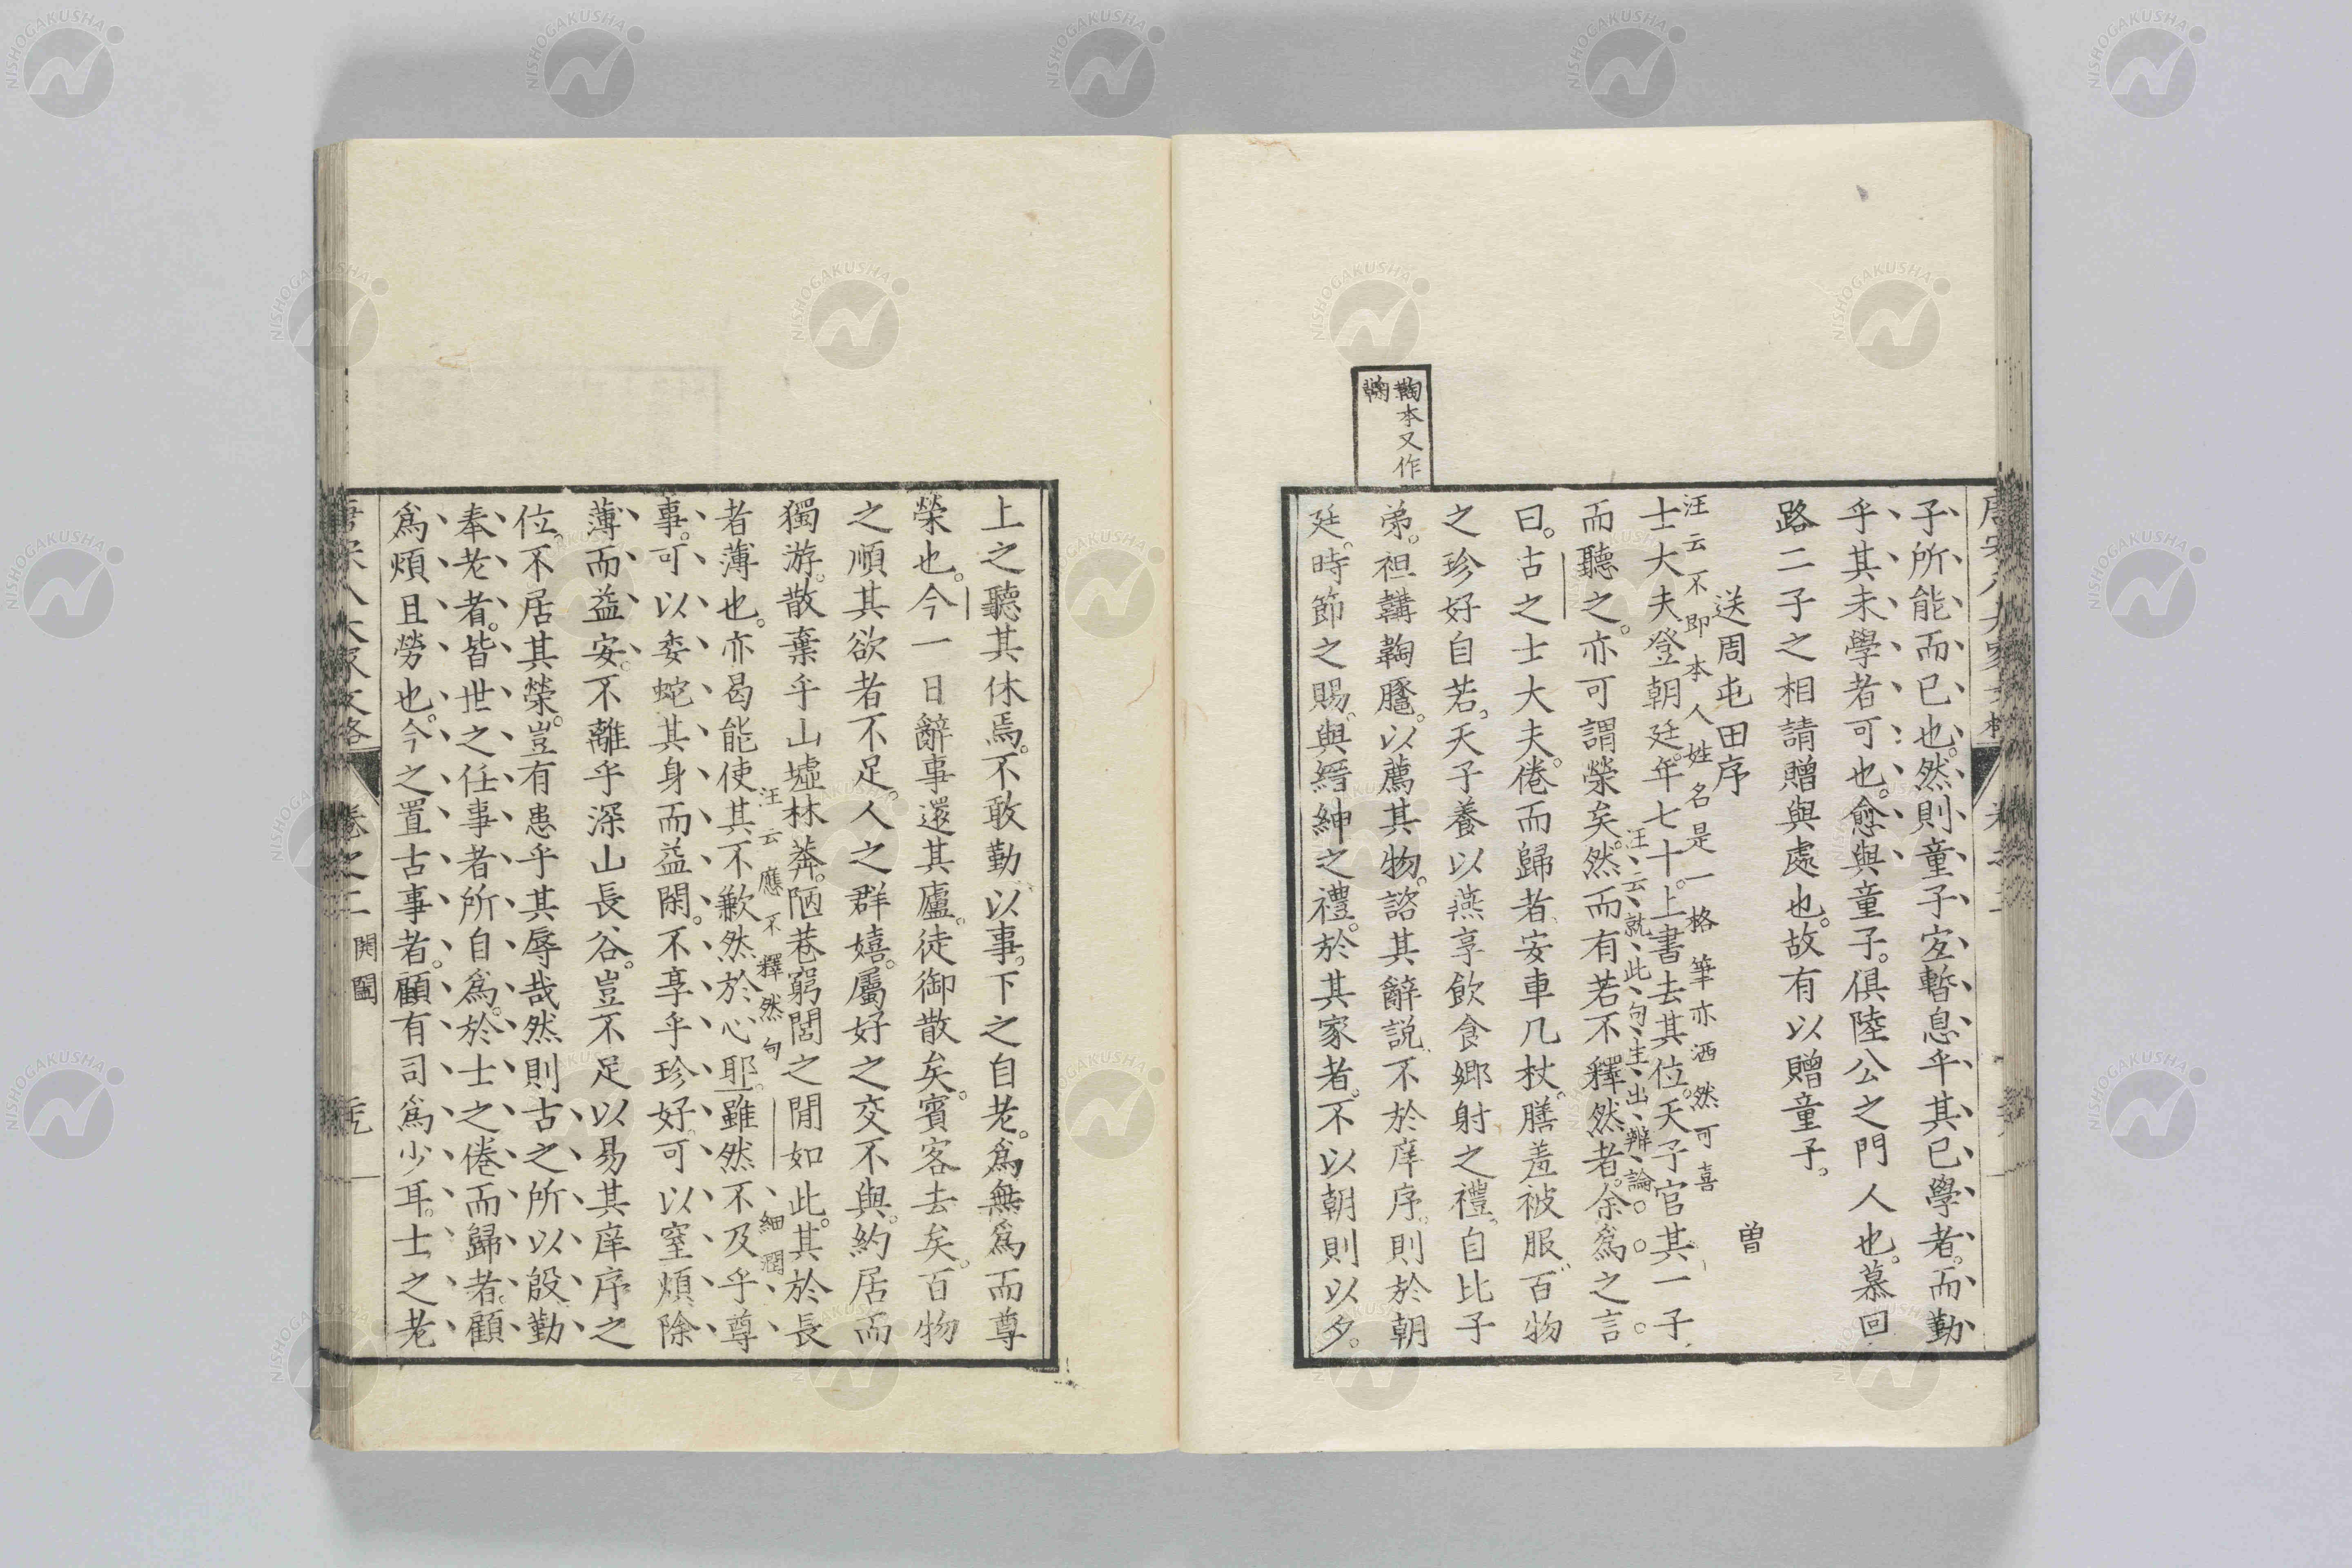 子所能而已也。然則童子宜暫息乎其已學者。而勤
乎其未學者可也。愈與童子。俱陸公之門人也。慕回
路二子之相請贈與處也。故有以贈童子。
送周屯田序
曽
汪云不即本人姓名是一格筆亦洒然可喜
士大夫登朝廷。年七十。上書去其位。天子官其一子
汪云就此句生出辨論
而聽之。亦可謂榮矣。然而有若不釋然者。余爲之言
曰。古之士大夫。倦而歸者。安車几杖。膳羞被服。百物
之珍好自若。天子養以燕享飲食鄉射之禮。自比子
鞠本又作
弟。袒韝鞠䐡。以薦其物。諮其辭説。不於庠序。則於朝
廷。時節之賜。與縉紳之禮。於其家者。不以朝則以夕。
上之聽其休焉。不敢勤以事。下之自老。爲無爲而尊
榮也。今一日辭事還其廬。徒御散矣。賓客去矣。百物
之順其欲者不足。人之群嬉。屬好之交不與。約居而
獨游。散棄乎山墟林莽。陋巷窮閭之閒如此。其於長
汪云應不釋然句
細潤
者薄也。亦曷能使其不歉然於心耶。雖然不及乎尊
事。可以委蛇其身而益閑。不享乎珍好。可以窒煩除
薄而益安。不離乎深山長谷。豈不足以易其庠序之
位。不居其榮。豈有患乎其辱哉。然則古之所以殷勤
奉老者。皆世之任事者所自爲。於士之倦而歸者。顧
爲煩且勞也。今之置古事者。顧有司爲少耳。士之老
唐宋八大家文格
卷之二
開闔